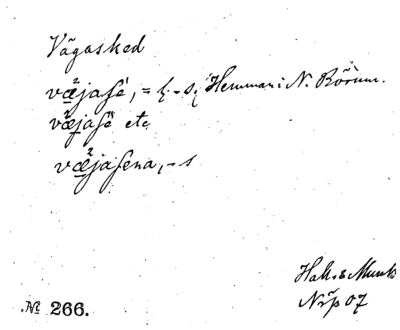 Vägasked
væjasé, = h. -s. Hemman i N. Rörum.
væjasé etc
væjasena, -s
Hall. & Munk
Nrp 07
№ 266.